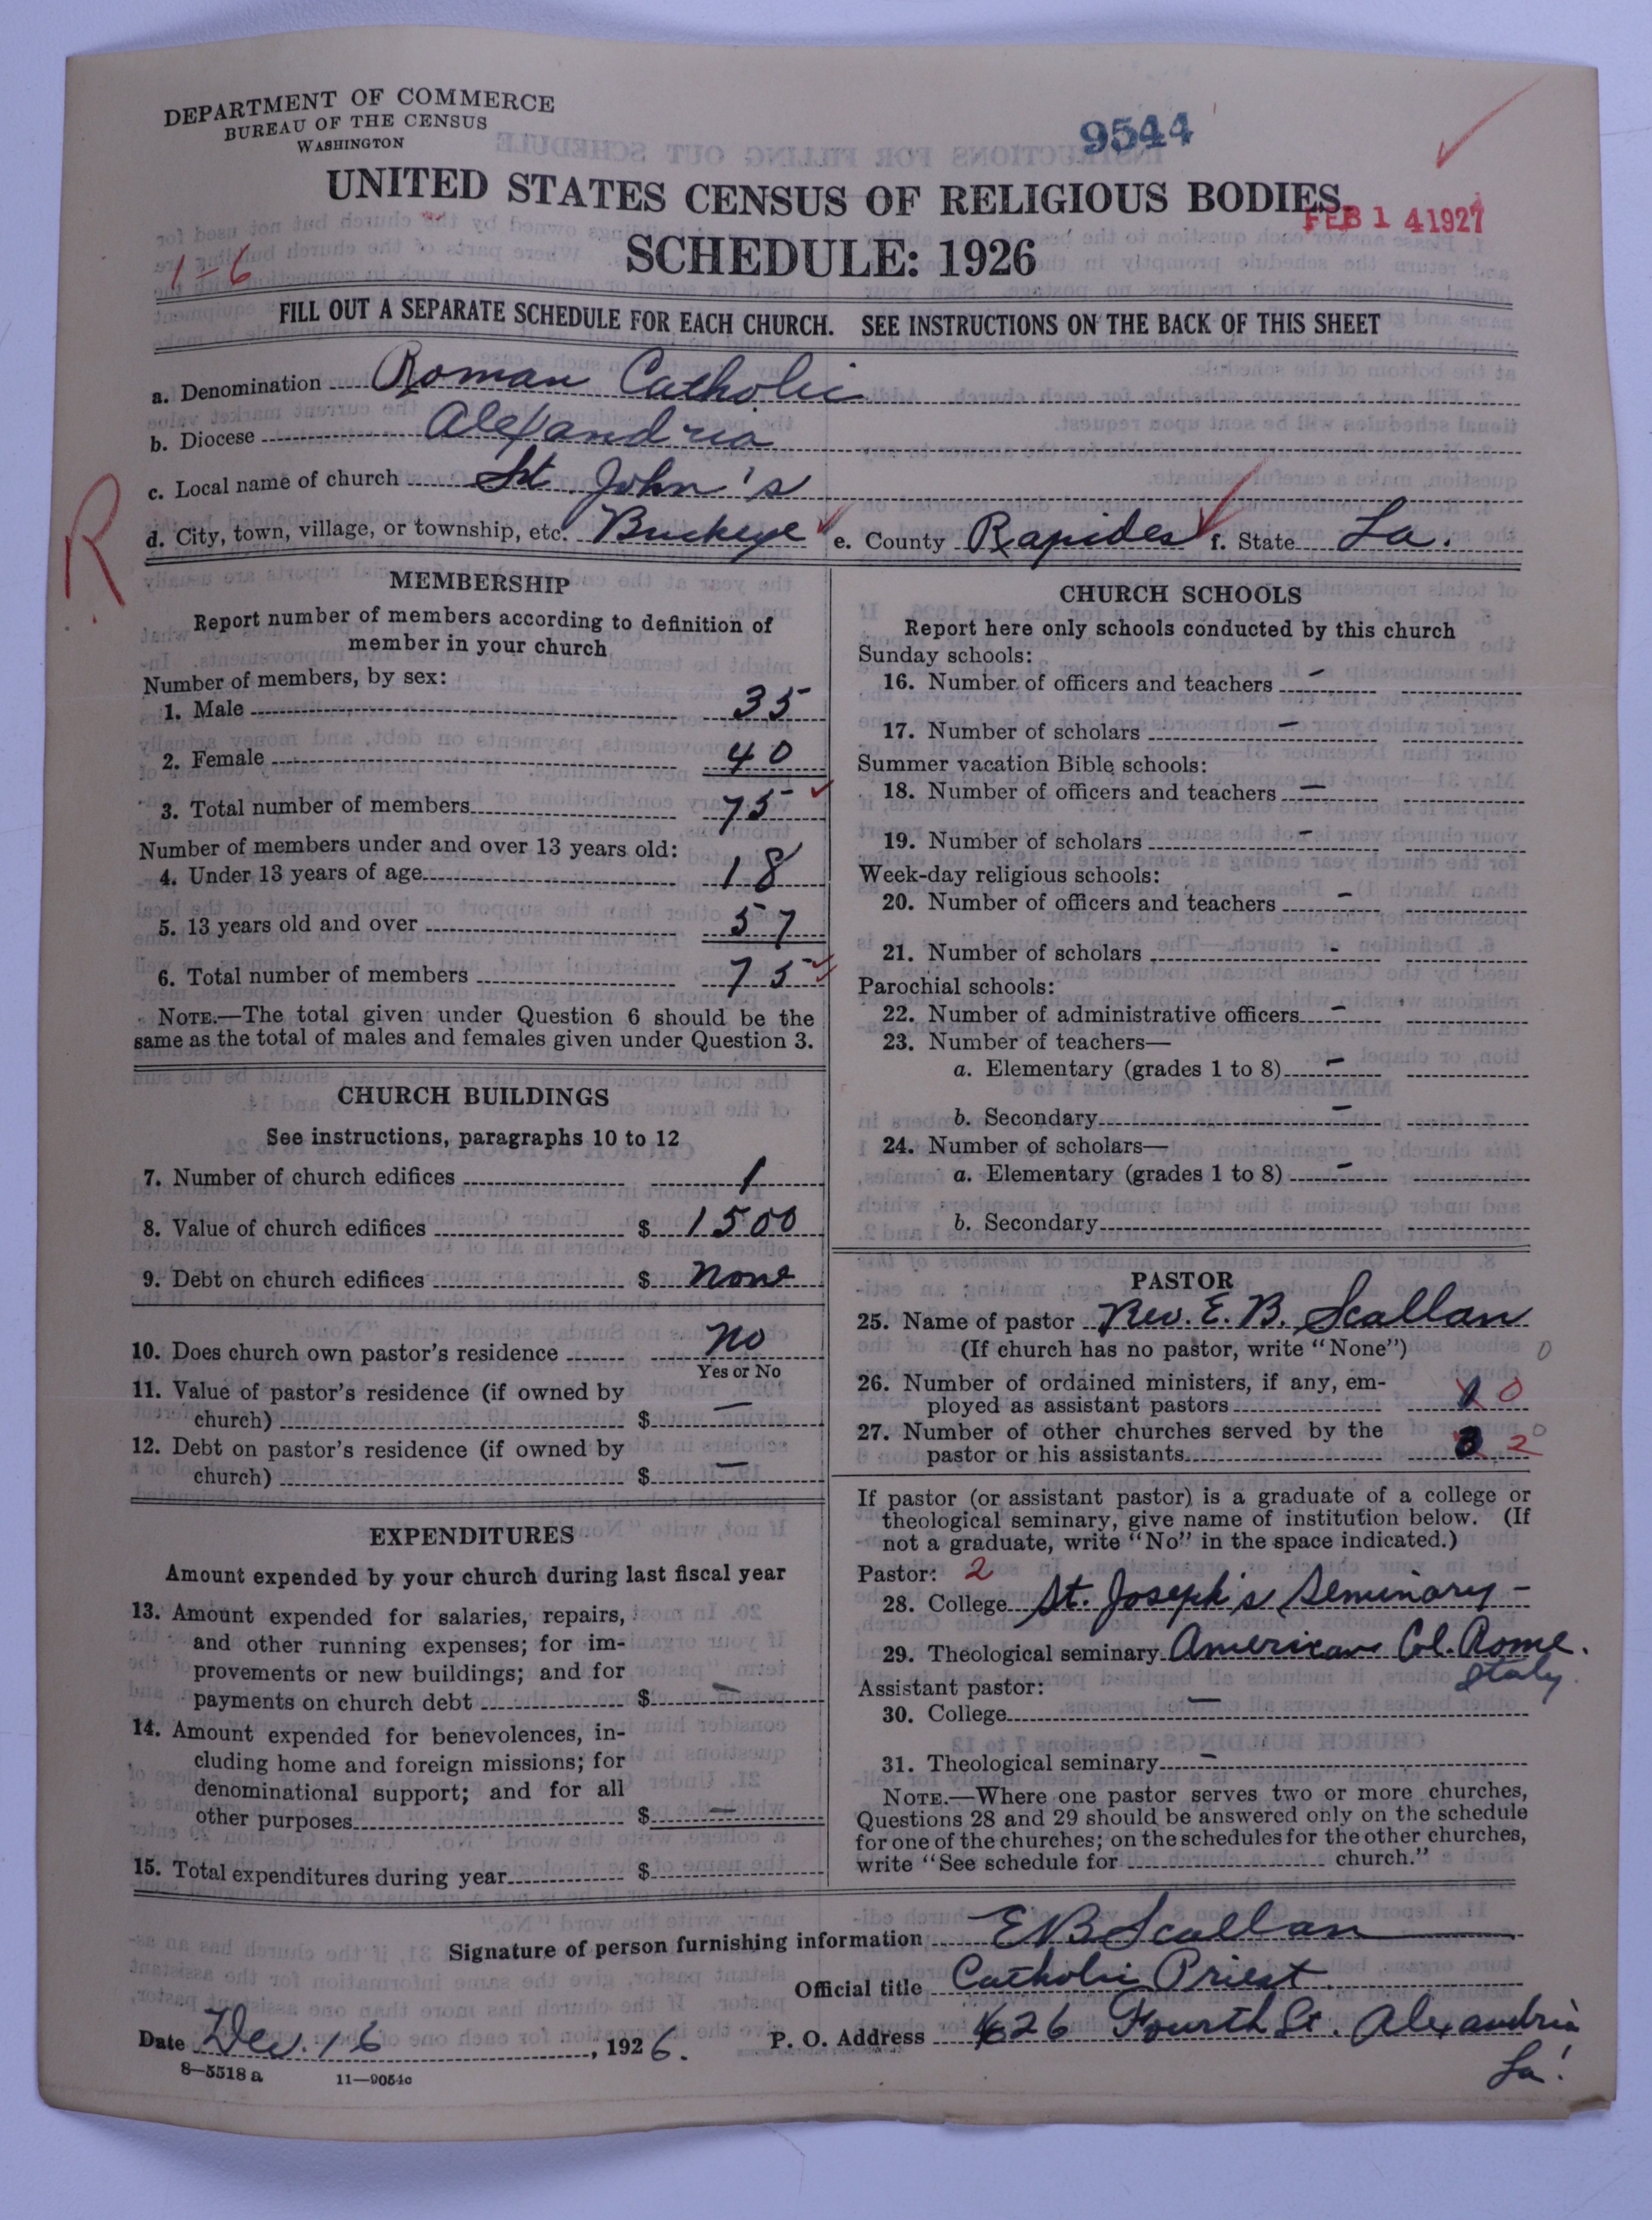 DEPARTMENT OF COMMERCE
BUREAU OF THE CENSUS
WASHINGTON
9544
UNITED STATES CENSUS OF RELIGIOUS BODIES
FEB 14 1927
SCHEDULE: 1926
1-6
FILL OUT A SEPARATE SCHEDULE FOR EACH CHURCH. SEE INSTRUCTIONS ON THE BACK OF THIS SHEET
a. Denomination Roman Catholic
b. Diocese Alexandria
c. Local name of church St. John's
R
d. City, town, village, or township, etc. Buckeye e. County Rapides f. State La.
MEMBERSHIP
Report number of members according to definition of
member in your church
Number of members, by sex:
1. Male 35
2. Female 40
3. Total number of members 75
Number of members under and over 13 years old:
4. Under 13 years of age 18
5. 13 years old and over 57
6. Total number of members 75
NOTE.—The total given under Question 6 should be the
same as the total of males and females given under Question 3.
CHURCH BUILDINGS
See instructions, paragraphs 10 to 12
7. Number of church edifices 1
8. Value of church edifices $ 1500
9. Debt on church edifices $ none
10. Does church own pastor's residence no
Yes or No
11. Value of pastor's residence (if owned by
church) $ —
12. Debt on pastor's residence (if owned by
church) $ —
EXPENDITURES
Amount expended by your church during last fiscal year
13. Amount expended for salaries, repairs,
and other running expenses; for im-
provements or new buildings; and for
payments on church debt $ —
14. Amount expended for benevolences, in-
cluding home and foreign missions; for
denominational support; and for all
other purposes $ —
15. Total expenditures during year $
CHURCH SCHOOLS
Report here only schools conducted by this church
Sunday schools:
16. Number of officers and teachers -
17. Number of scholars -
Summer vacation Bible schools:
18. Number of officers and teachers -
19. Number of scholars -
Week-day religious schools:
20. Number of officers and teachers -
21. Number of scholars -
Parochial schools:
22. Number of administrative officers -
23. Number of teachers—
a. Elementary (grades 1 to 8) -
b. Secondary -
24. Number of scholars—
a. Elementary (grades 1 to 8) -
b. Secondary
PASTOR
25. Name of pastor Rev. E. B. Scallan
(If church has no pastor, write "None") 0
26. Number of ordained ministers, if any, em-
ployed as assistant pastors 0
27. Number of other churches served by the 0
pastor or his assistants 2
If pastor (or assistant pastor) is a graduate of a college or
theological seminary, give name of institution below. (If
not a graduate, write "No" in the space indicated.)
Pastor: 2
28. College St. Joseph's Seminary -
29. Theological seminary American Col. Rome.
Italy
Assistant pastor:
30. College —
31. Theological seminary -
NOTE.—Where one pastor serves two or more churches,
Questions 28 and 29 should be answered only on the schedule
for one of the churches; on the schedules for the other churches,
write "See schedule for church."
Signature of person furnishing information EB Scallan
Official title Catholic Priest.
Date Dec. 16, 1926. P. O. Address 626 Fourth St. Alexandria
La.
8—5518 a 11—9054c